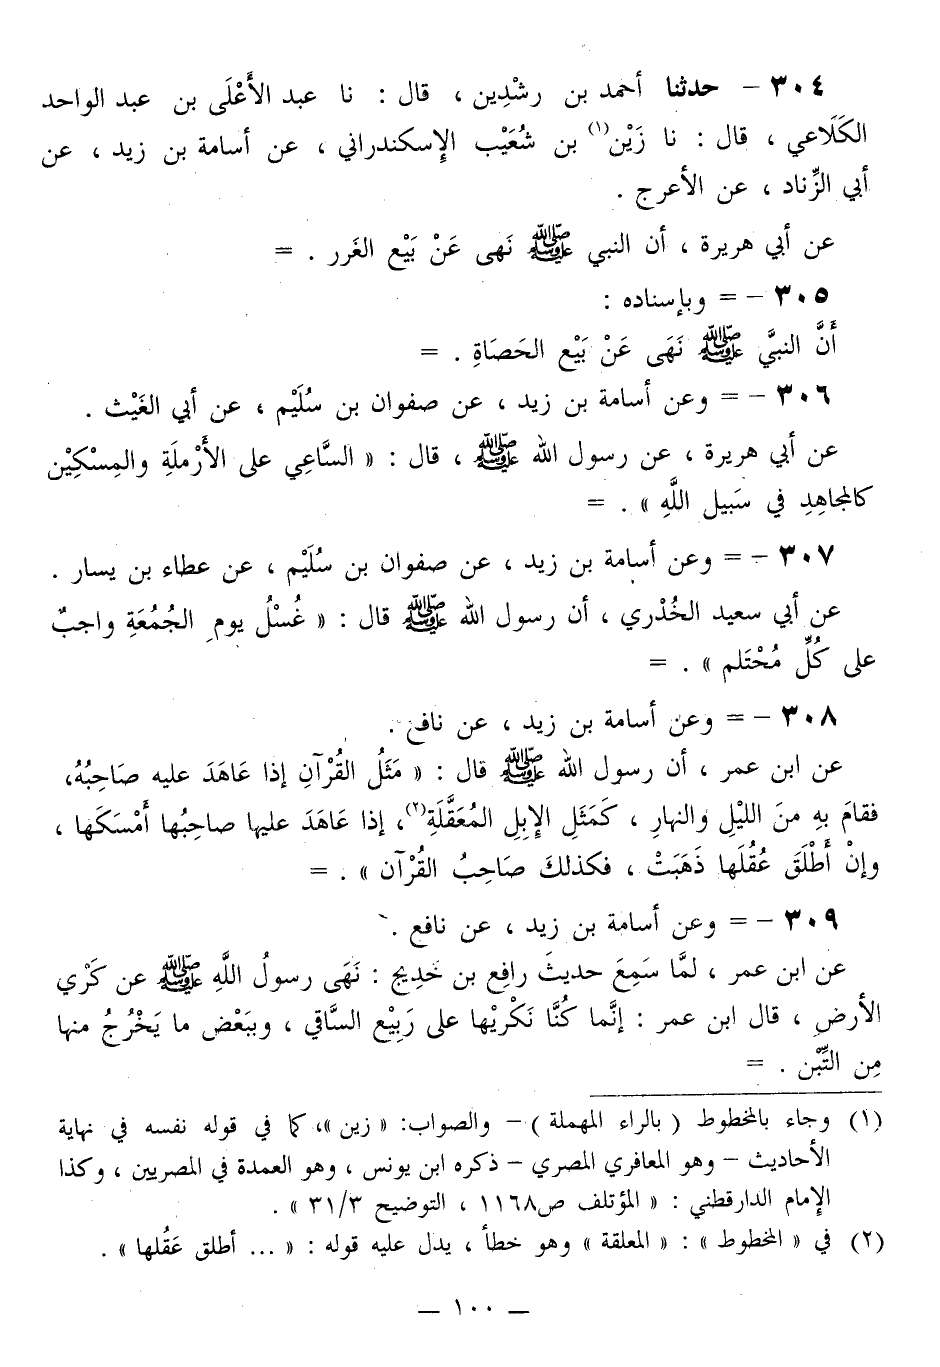 ٣٠٤ – حدثنا أحمد بن رشْدِين ، قال : نا عبد الأَعْلَى بن عبد الواحد
الكَلَاعي ، قال : نا زَيْن(١) بن شُعَيْب الإِسكندراني ، عن أسامة بن زيد ، عن
أبي الزِّناد ، عن الأعرج .
عن أبي هريرة ، أن النبي ﷺ نَهى عَنْ بَيْع الغَرر . =
٣٠٥ – = وبإسناده :
أَنَّ النبيَّ ﷺ نَهَى عَنْ بَيْع الحَصَاةِ . =
٣٠٦ – = وعن أسامة بن زيد ، عن صفوان بن سُلَيْم ، عن أبي الغَيْث .
عن أبي هريرة ، عن رسول الله ﷺ ، قال : « السَّاعِي على الأَرْملَةِ والمِسْكِيْن
كالمجاهِدِ في سَبيل اللَّهِ » . =
٣٠٧ – = وعن أسامة بن زيد ، عن صفوان بن سُلَيْم ، عن عطاء بن يسار .
عن أبي سعيد الخُدْري ، أن رسول الله ﷺ قال : « غُسْلُ يومِ الجُمُعَةِ واجبٌ
على كُلِّ مُحْتَلم » . =
٣٠٨ – = وعن أسامة بن زيد ، عن نافع .
عن ابن عمر ، أن رسول الله ﷺ قال : « مَثَلُ القُرْآنِ إذا عَاهَدَ عليه صَاحِبُهُ،
فقامَ بِهِ منَ الليْلِ والنهارِ ، كَمَثَلِ الإِبِلِ المُعَقَّلَةِ(٢)، إذا عَاهَدَ عليها صاحِبُها أمْسَكَها ،
وإنْ أَطْلَقَ عُقُلَها ذَهَبَتْ ، فكذلكَ صَاحِبُ القُرْآن » . =
٣٠٩ – = وعن أسامة بن زيد ، عن نافع .
عن ابن عمر ، لمَّا سَمِعَ حديثَ رافِع بن خَدِيج : نَهَى رسولُ اللَّهِ ﷺ عن كَرْي
الأرضِ ، قال ابن عمر : إنَّما كُنَّا نَكْريْها على رَبِيْع السَّاقي ، وببَعْض ما يَخْرُجُ منها
مِن التِّبْن . =
(١) وجاء بالمخطوط ( بالراء المهملة ) – والصواب: « زين »، كما في قوله نفسه في نهاية
الأحاديث – وهو المعافري المصري – ذكره ابن يونس ، وهو العمدة في المصريين ، وكذا
الإمام الدارقطني : « المؤتلف ص١١٦٨ ، التوضيح ٣١/٣ » .
(٢) في « المخطوط » : « المعلقة » وهو خطأ ، يدل عليه قوله : « ... أطلق عَقُلها » .
— ١٠٠ —